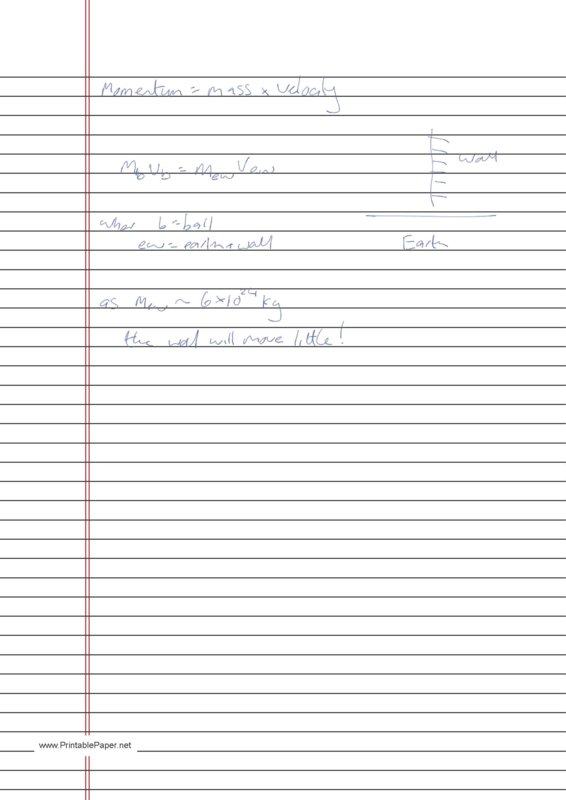 Momentum = mass x velocity
wall
MbVb = MewVew
where b = ball
ew = earth + wall
Earth
as Mew ~ 6x10^24 kg
the wall will move little!
www.PrintablePaper.net